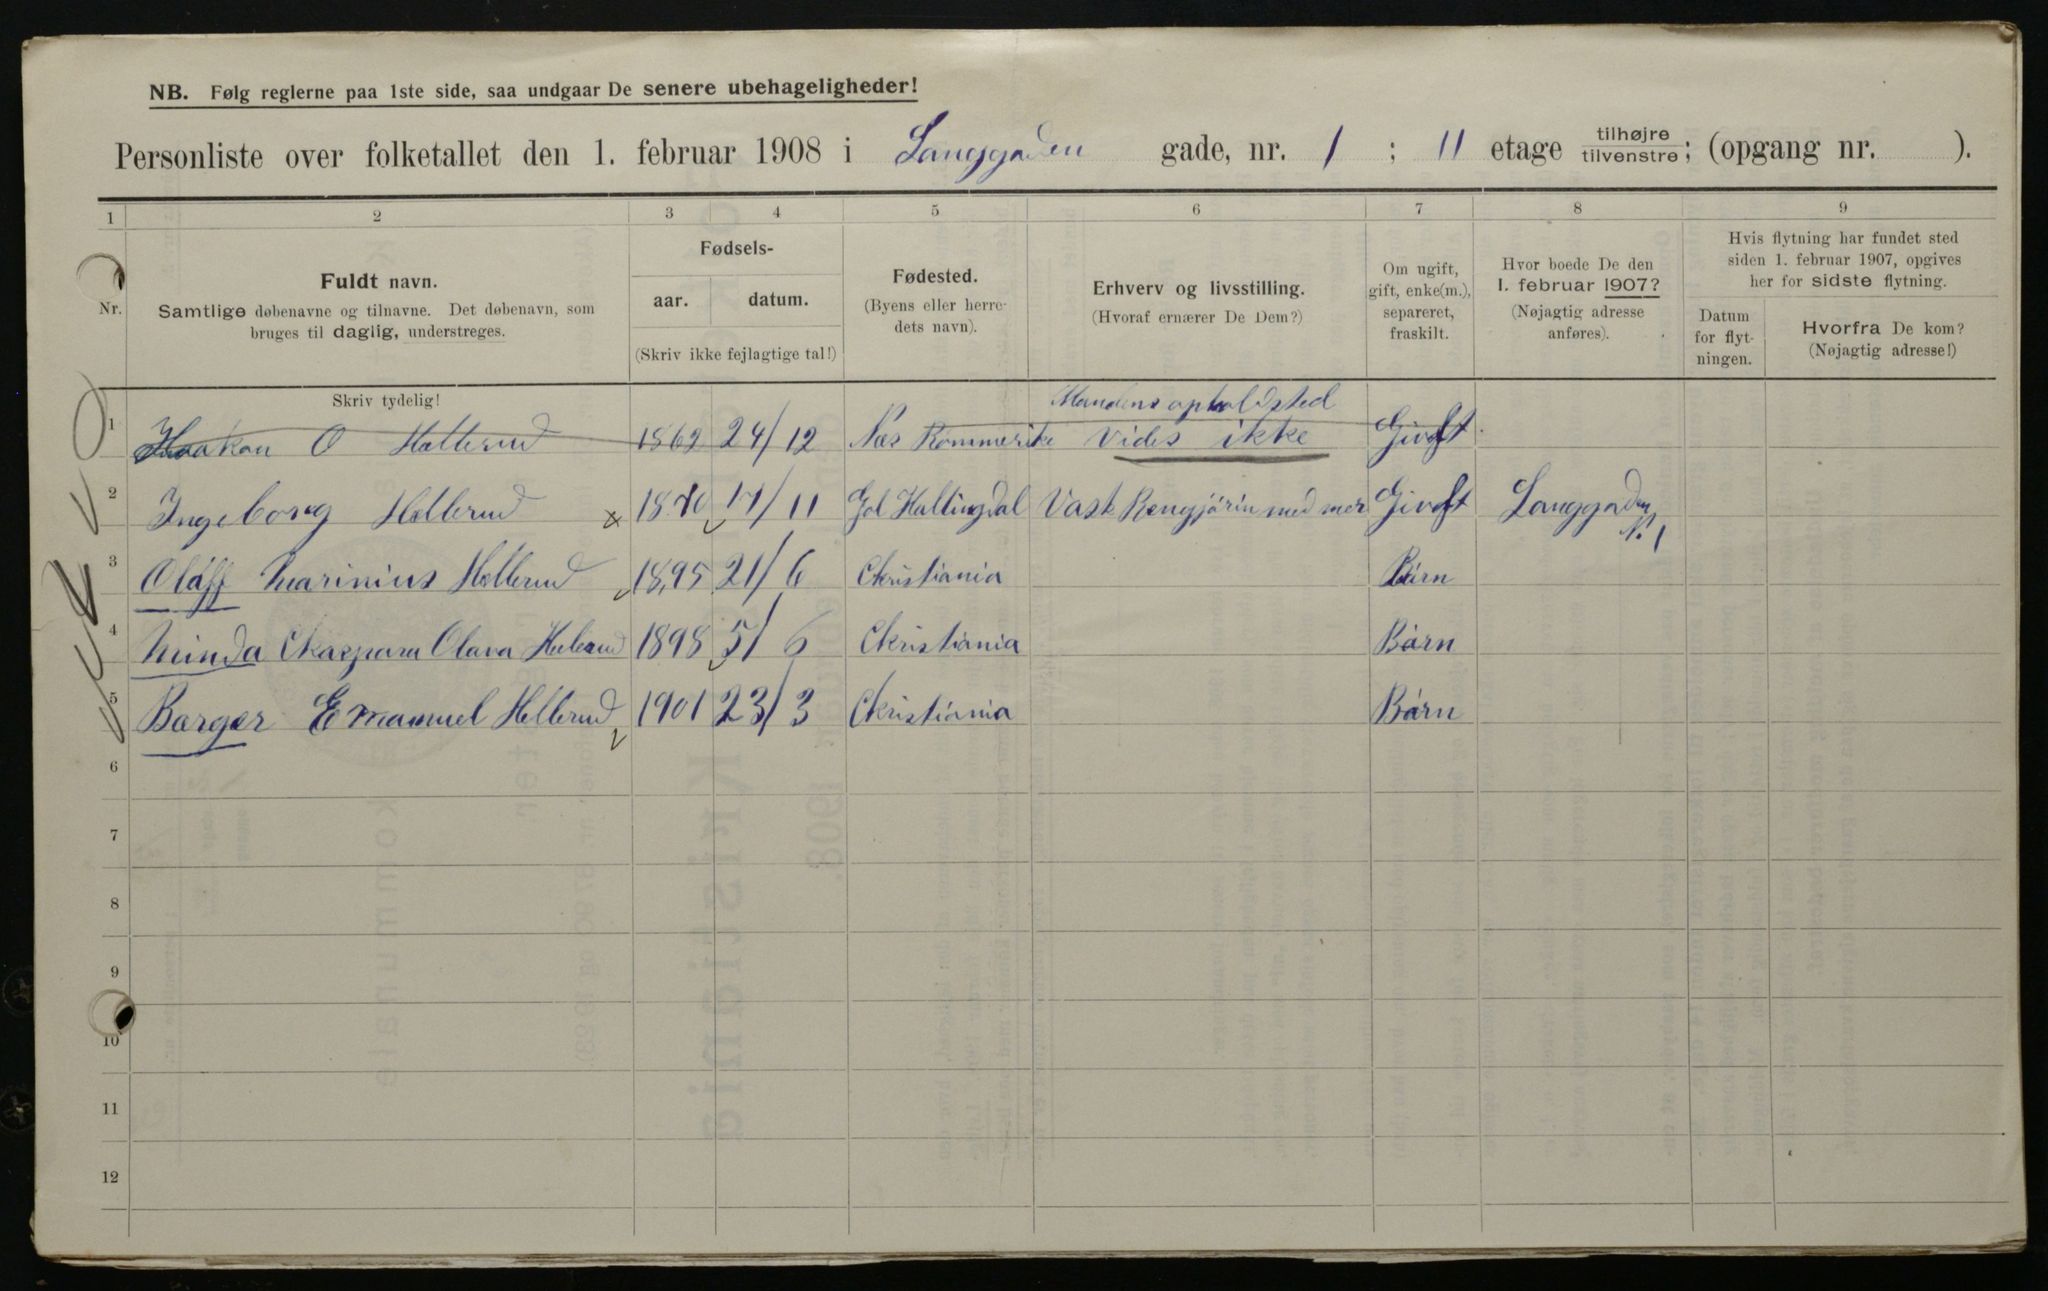 NB. Følg reglerne paa 1ste side, saa undgaar De senere ubehageligheder!
Personliste over folketallet den 1. februar 1908 i Langgaden gade, nr. 1 ; 11 etage tilhøjre tilvenstre; (opgang nr. ).
1 2 3 4 5 6 7 8 9
Nr.
Fuldt navn.
Samtlige døbenavne og tilnavne. Det døbenavn, som
bruges til daglig, understreges.
Fødsels-
aar. datum.
(Skriv ikke fejlagtige tal!)
Fødested.
(Byens eller herre-
dets navn).
Erhverv og livsstilling.
(Hvoraf ernærer De Dem?)
Om ugift,
gift, enke(m.),
separeret,
fraskilt.
Hvor boede De den
1. februar 1907?
(Nøjagtig adresse
anføres).
Hvis flytning har fundet sted
siden 1. februar 1907, opgives
her for sidste flytning.
Datum
for flyt-
ningen.
Hvorfra De kom?
(Nøjagtig adresse!)
Skriv tydelig!
Mandens opholdsted
1 Haakon O Hellerud 1862 24/12 Næs Rommerike Vides ikke Givft
2 Ingeborg Hellerud 1870 17/11 Gol Hallingdal Vask Rengjørin med mer Givft Langgaden
N. 1
3 Olaff Marinius Hellerud 1895 21/6 Christiania Børn
4 Minda Olava 1898 5/6 Christiania Børn
5 Berger Emanuel Hellerud 1901 23/3 Christiania Børn
6
7
8
9
10
11
12